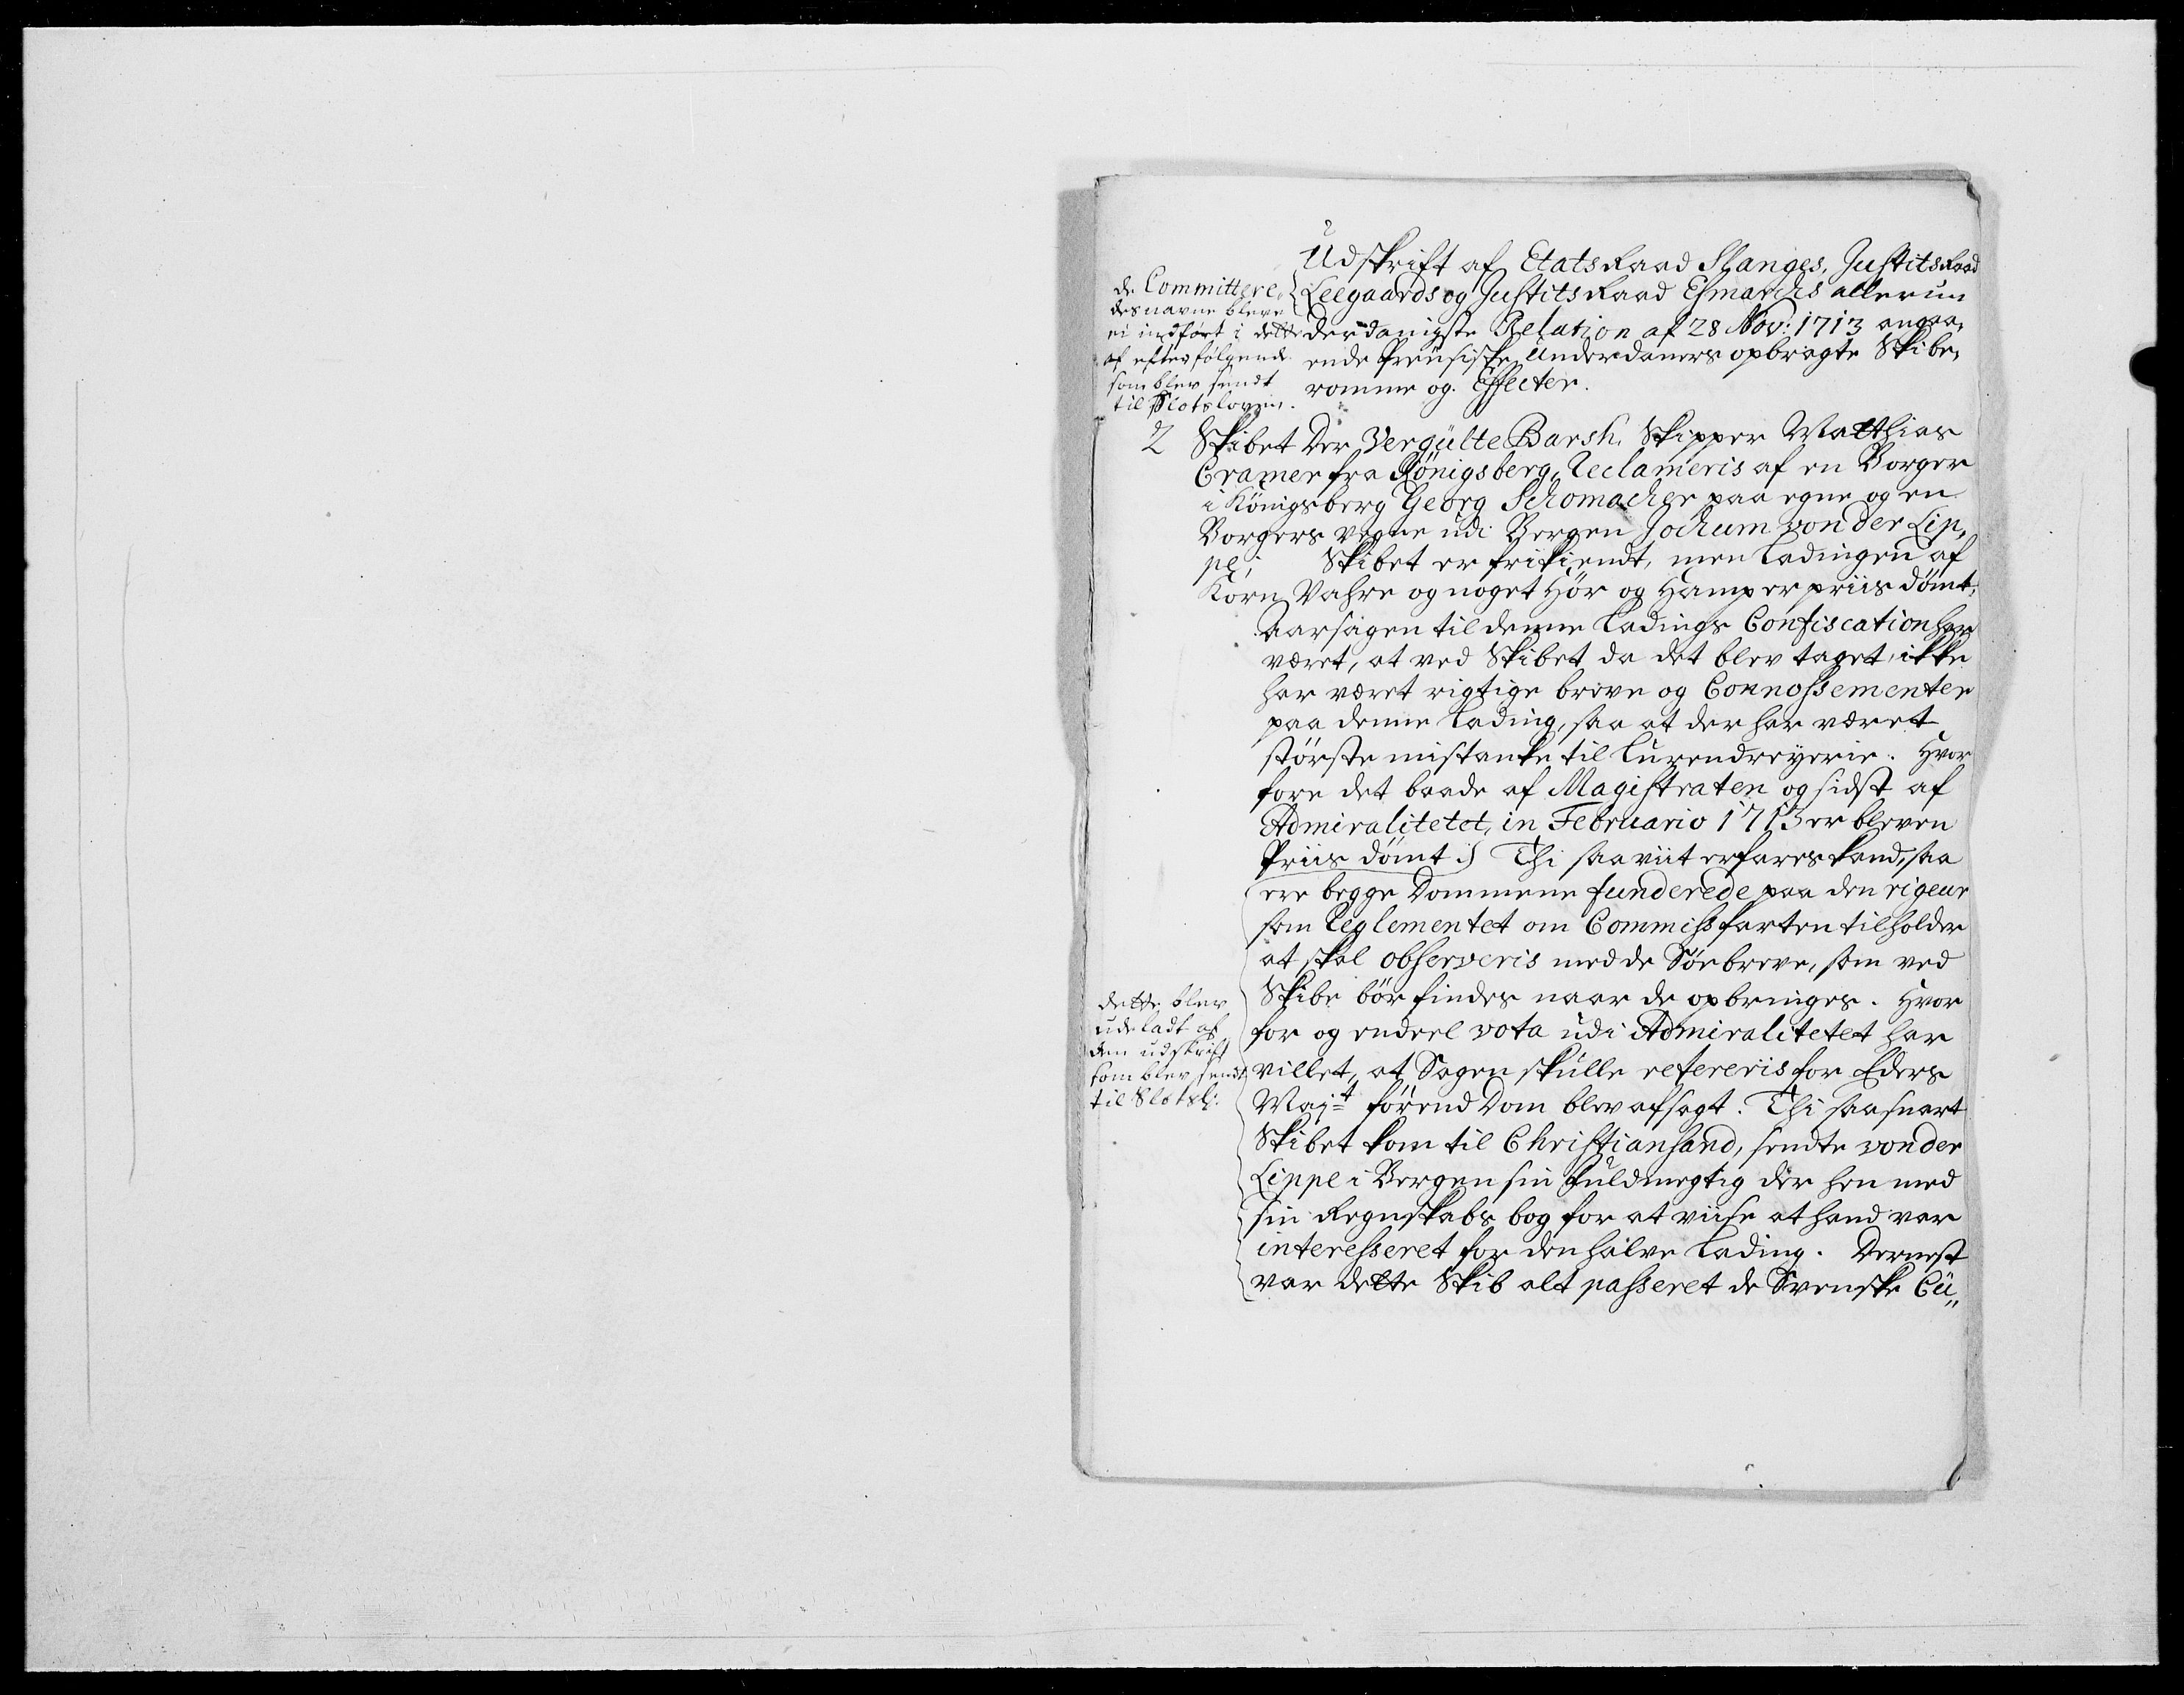 Udskrift af Etats Raad Slanges, Justits Raad
Leegaards og Justits Raad Esmarchs allerun
derdanigste Relation af 28 Nov: 1713 angaa,
ende Preusiske Underdaners opbragte Skibe,
romme og Effecter.
de Committere,
des navne bleve
ei indført i dette
af efterfølgende
som blev sendt
til Slotsloven.
2 Skibet Der Vergülte Barsh, Skipper Matthias
Cramer fra Königsberg, Reclameris af en Borger
i Königsberg Georg Schomacher paa egne og en
Borgers vegne udi Bergen Jochum von der Lip,
pe, Skibet er frikiendt, men Ladingen af
Korn Vahre og noget Hör og Hamp er priis dömt,
Aarsagen til denne Ladings Confiscation har
været, at ved Skibet da det blev taget, ikke
har været rigtige breve og Connossementer
paa denne Lading, saa at der har været
störste mistanke til Lurendreyerie. Hvor
fore det baade af Magistraten og sidst af
Admiralitetet, in Februario 1713 er bleven
Priis dömt :/ Thi saa viit erfares kand, saa
ere begge Dommene funderede paa den rigeur
som Reglementet om Commissfarten tilholder
at skal observeris med de Söe breve, som ved
Skibe bör findes naar de opbringes. Hvor
for og endeel vota udi Admiralitetet har
villet, at Sagen skulle refereris for Eders
Maj:t förend Dom blev afsagt. Thi saa snart
Skibet kom til Christiansand, sendte von der
Lippe i Bergen sin fuldmegtig der hen med
sin Regnskabs bog for at viise at hand var
interesseret for den halve Lading. Dernest
var dette Skib alt passeret de Svenske Cü,,
dette blev
udeladt af
den udskrift
som blev sendt
til Slotsl: